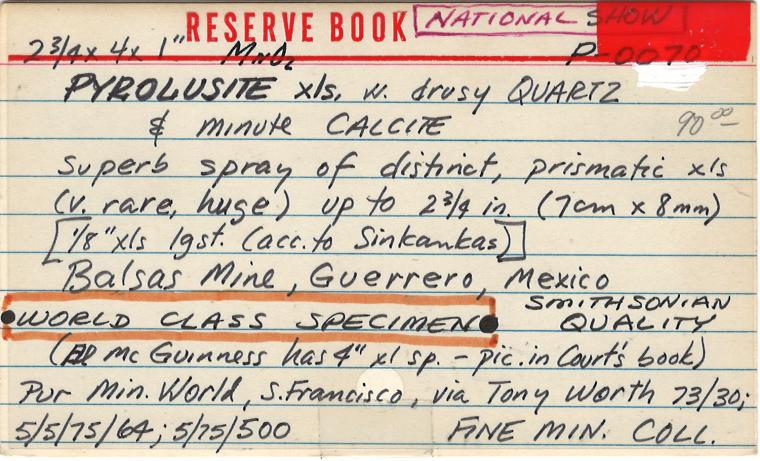 RESERVE BOOK NATIONAL SHOW
2 3/4 x 4 x 1" MnO2 P-0070
PYROLUSITE xls, w. drusy QUARTZ
& minute CALCITE 90 00
Superb spray of distinct, prismatic xls
(v. rare, huge) up to 2 3/4 in. (7cm x 8mm)
[1/8" xls lgst. (acc. to Sinkankas)]
Balsas Mine, Guerrero, Mexico
SMITHSONIAN
• WORLD CLASS SPECIMEN • QUALITY
(Al McGuinness has 4" xl sp. – pic. in Court's book)
Pur Min. World, S. Francisco, via Tony Worth 73/30;
5/5/75/64; 5/75/500 FINE MIN. COLL.